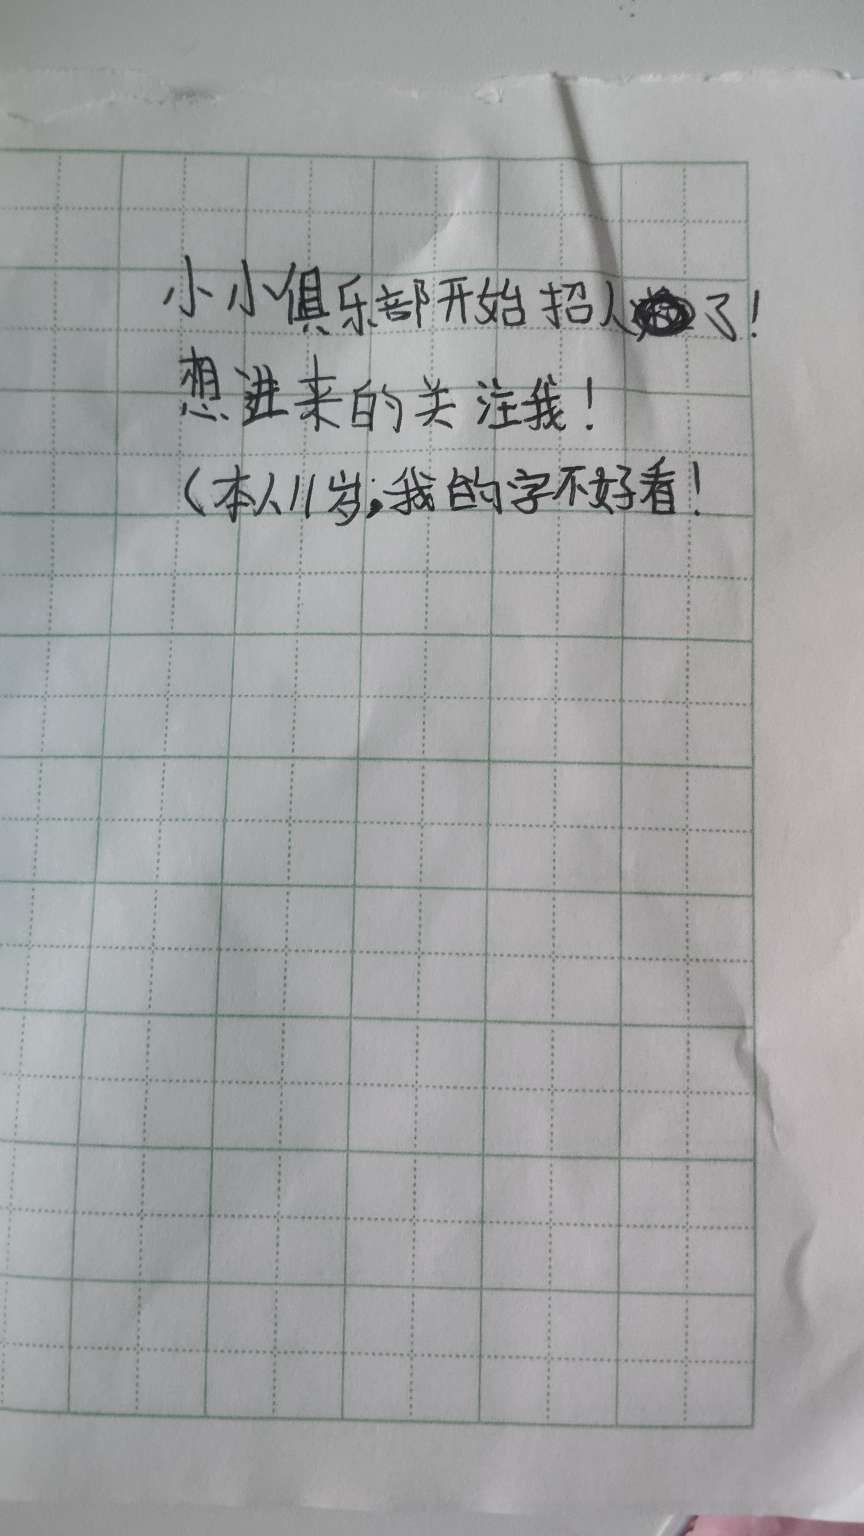 小小俱乐部开始招人了！
想进来的关注我！
（本人11岁，我的字不好看！